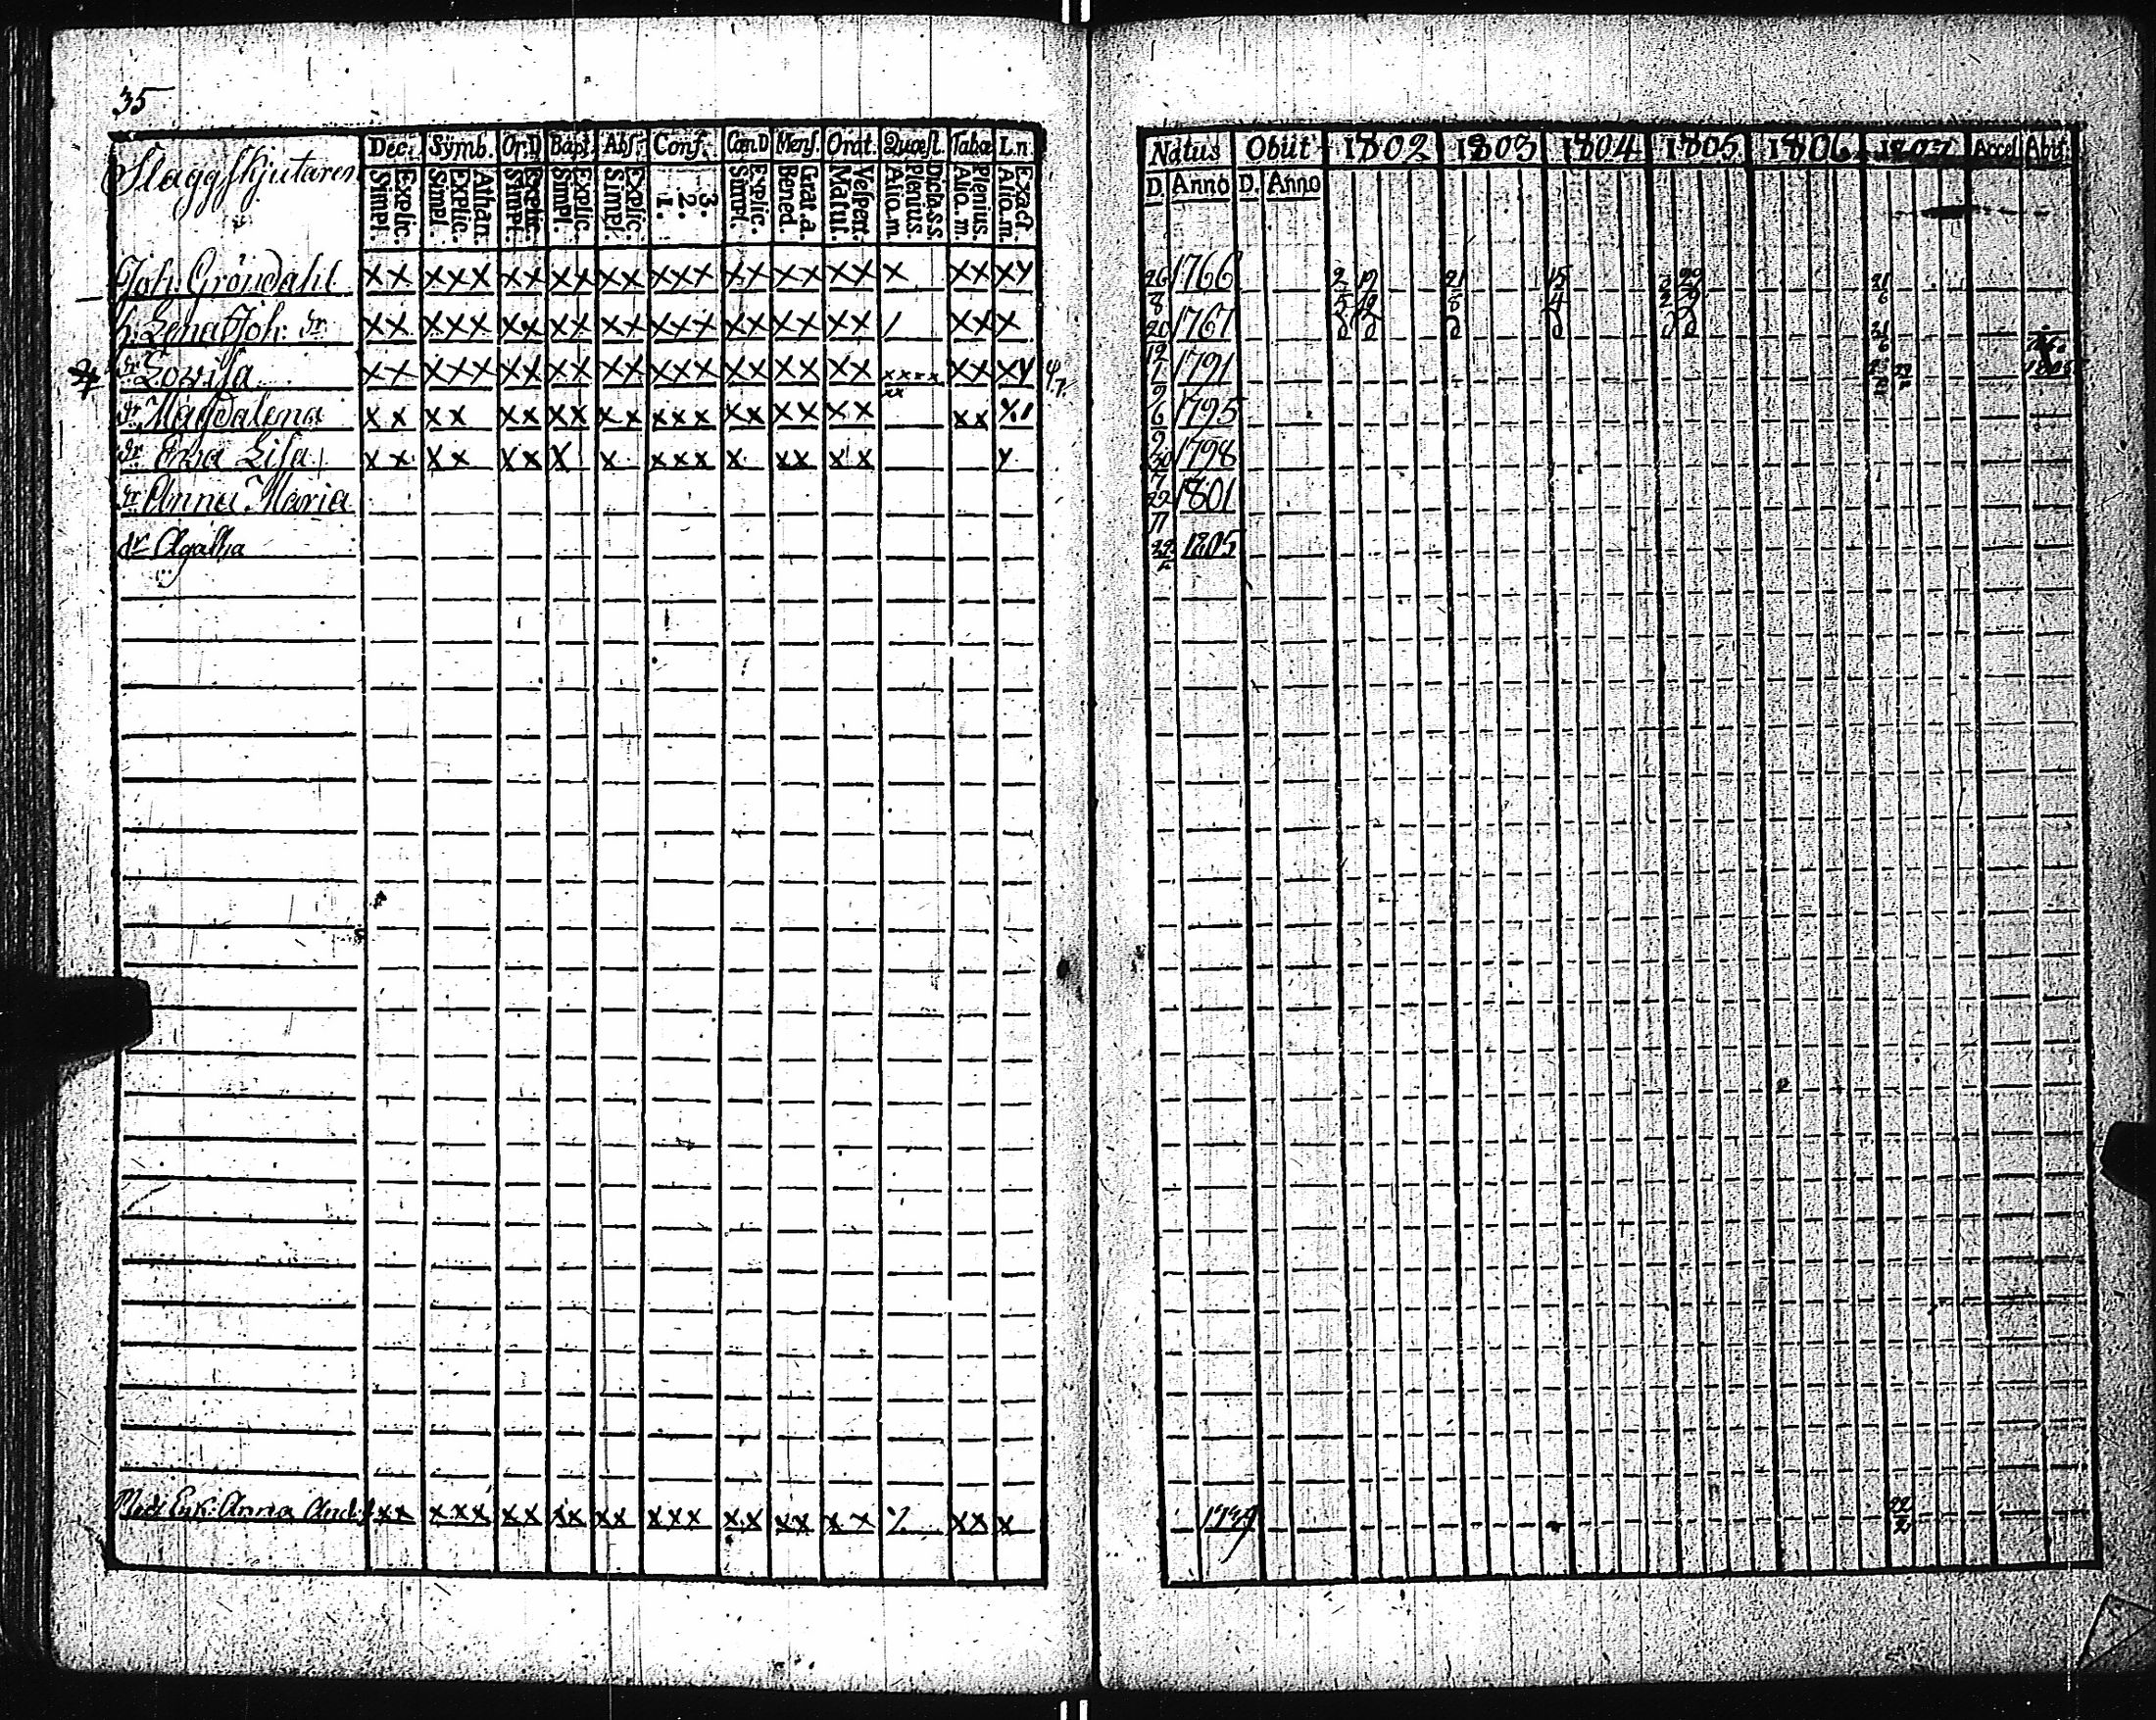 35
Slaggskjutaren Dec. Symb. Or.D Bapt. Abs. Conf. Cœn D Mens. Orat. Quæst. Tabæ L.n
Simpl. Explic. Simpl. Explic. Athan. Simpl. Explic. Simpl. Explic. Simpl. Explic. 1. 2. 3. Simpl. Explic. Bened. Grat. a. Matut. Vespert. Alio. m. Plenius. Dicta s.s. Alio. m. Plenius. Alio. m. Exact.
Joh. Gröndahl xx xxx xx xx xx xxx xx xx xx x xx xx
h. Lena Joh. dr xx xxx xx xx xx xxx xx xx xx / xx x
dr Lovisa xx xxx xx xx xx xxx xx xx xx xxxx xx xx
xx
dr Magdalena xx xx xx xx xx xxx xx xx xx xx
dr Erva Lisa xx xx xx x x xxx x xx xx
dr Anna Maria
dr Agatha
Enk. Anna xx xxx xx xx xx xxx xx xx xx xx x
Natus Obiit 1802 1803 1804 1805 1806 1807 Accef. Abit.
D. Anno D. Anno
26/8 1766 2/5 19/12 21/6 15/4 21/6
20/12 1767
1791
9/6 1795
9/30 1798
7/22 1801
1805
1739